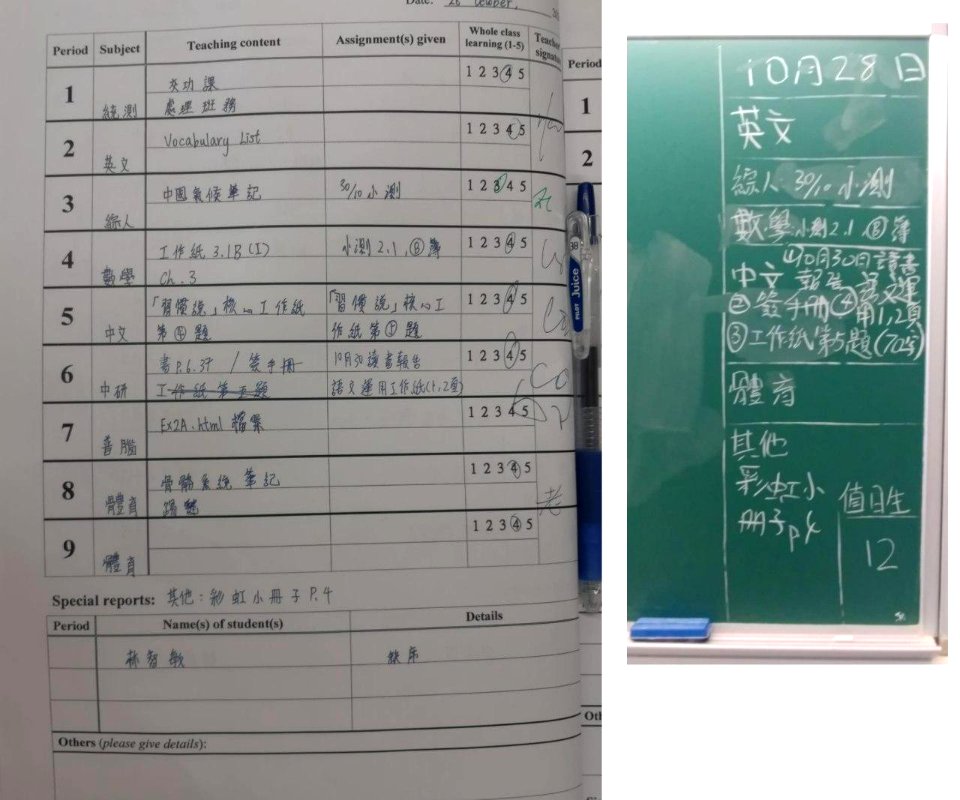 Date: 28 October,
Period Subject Teaching content Assignment(s) given Whole class learning (1-5) Teacher
1 統測 交功課 1 2 3 4 5
處理班務
2 英文 Vocabulary List 1 2 3 4 5
3 綜人 中國氣候筆記 30/10 小測 1 2 3 4 5
4 數學 工作紙 3.1B (I) 小測 2.1, Ⓑ簿 1 2 3 4 5
Ch. 3
5 中文 「習慣說」核心工作紙 「習慣說」核心工 1 2 3 4 5
第④題 作紙第⑤題
6 中研 書P.6.37 / 簽手冊 10月30讀書報告 1 2 3 4 5
工作紙第五題 語文運用工作紙(1,2頁)
7 普腦 Ex2A.html 檔案 1 2 3 4 5
8 體育 骨骼系統筆記 1 2 3 4 5
9 體育 1 2 3 4 5
Special reports: 其他：彩虹小冊子 P.4
Period Name(s) of student(s) Details
林智敏
Others (please give details):
Period
1
2
PILOT Juice
38
10月28日
英文
綜人 30/10 小測
數學 小測2.1 Ⓑ簿
中文 ①10月30日讀書報告
②簽手冊 ④語文運用1,2頁
③工作紙第5題(70字)
體育
其他
彩虹小冊子p4
值日生
12